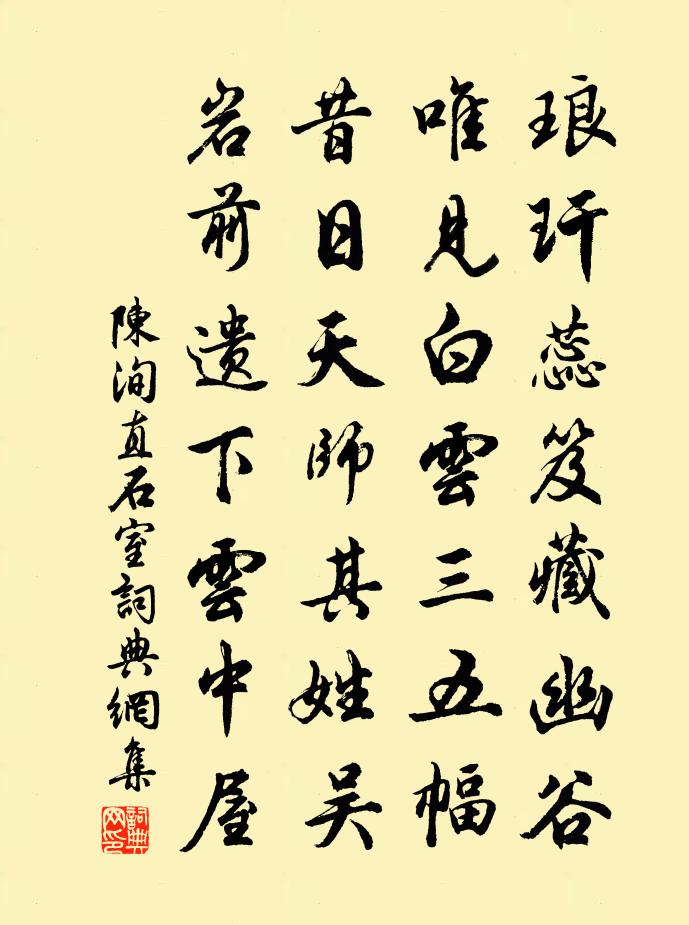 琅玕蕊笈藏幽谷
唯見白雲三五幅
昔日天師其姓吳
岩前遺下雲中屋
陳洵直石室詞典網集
詞典網印